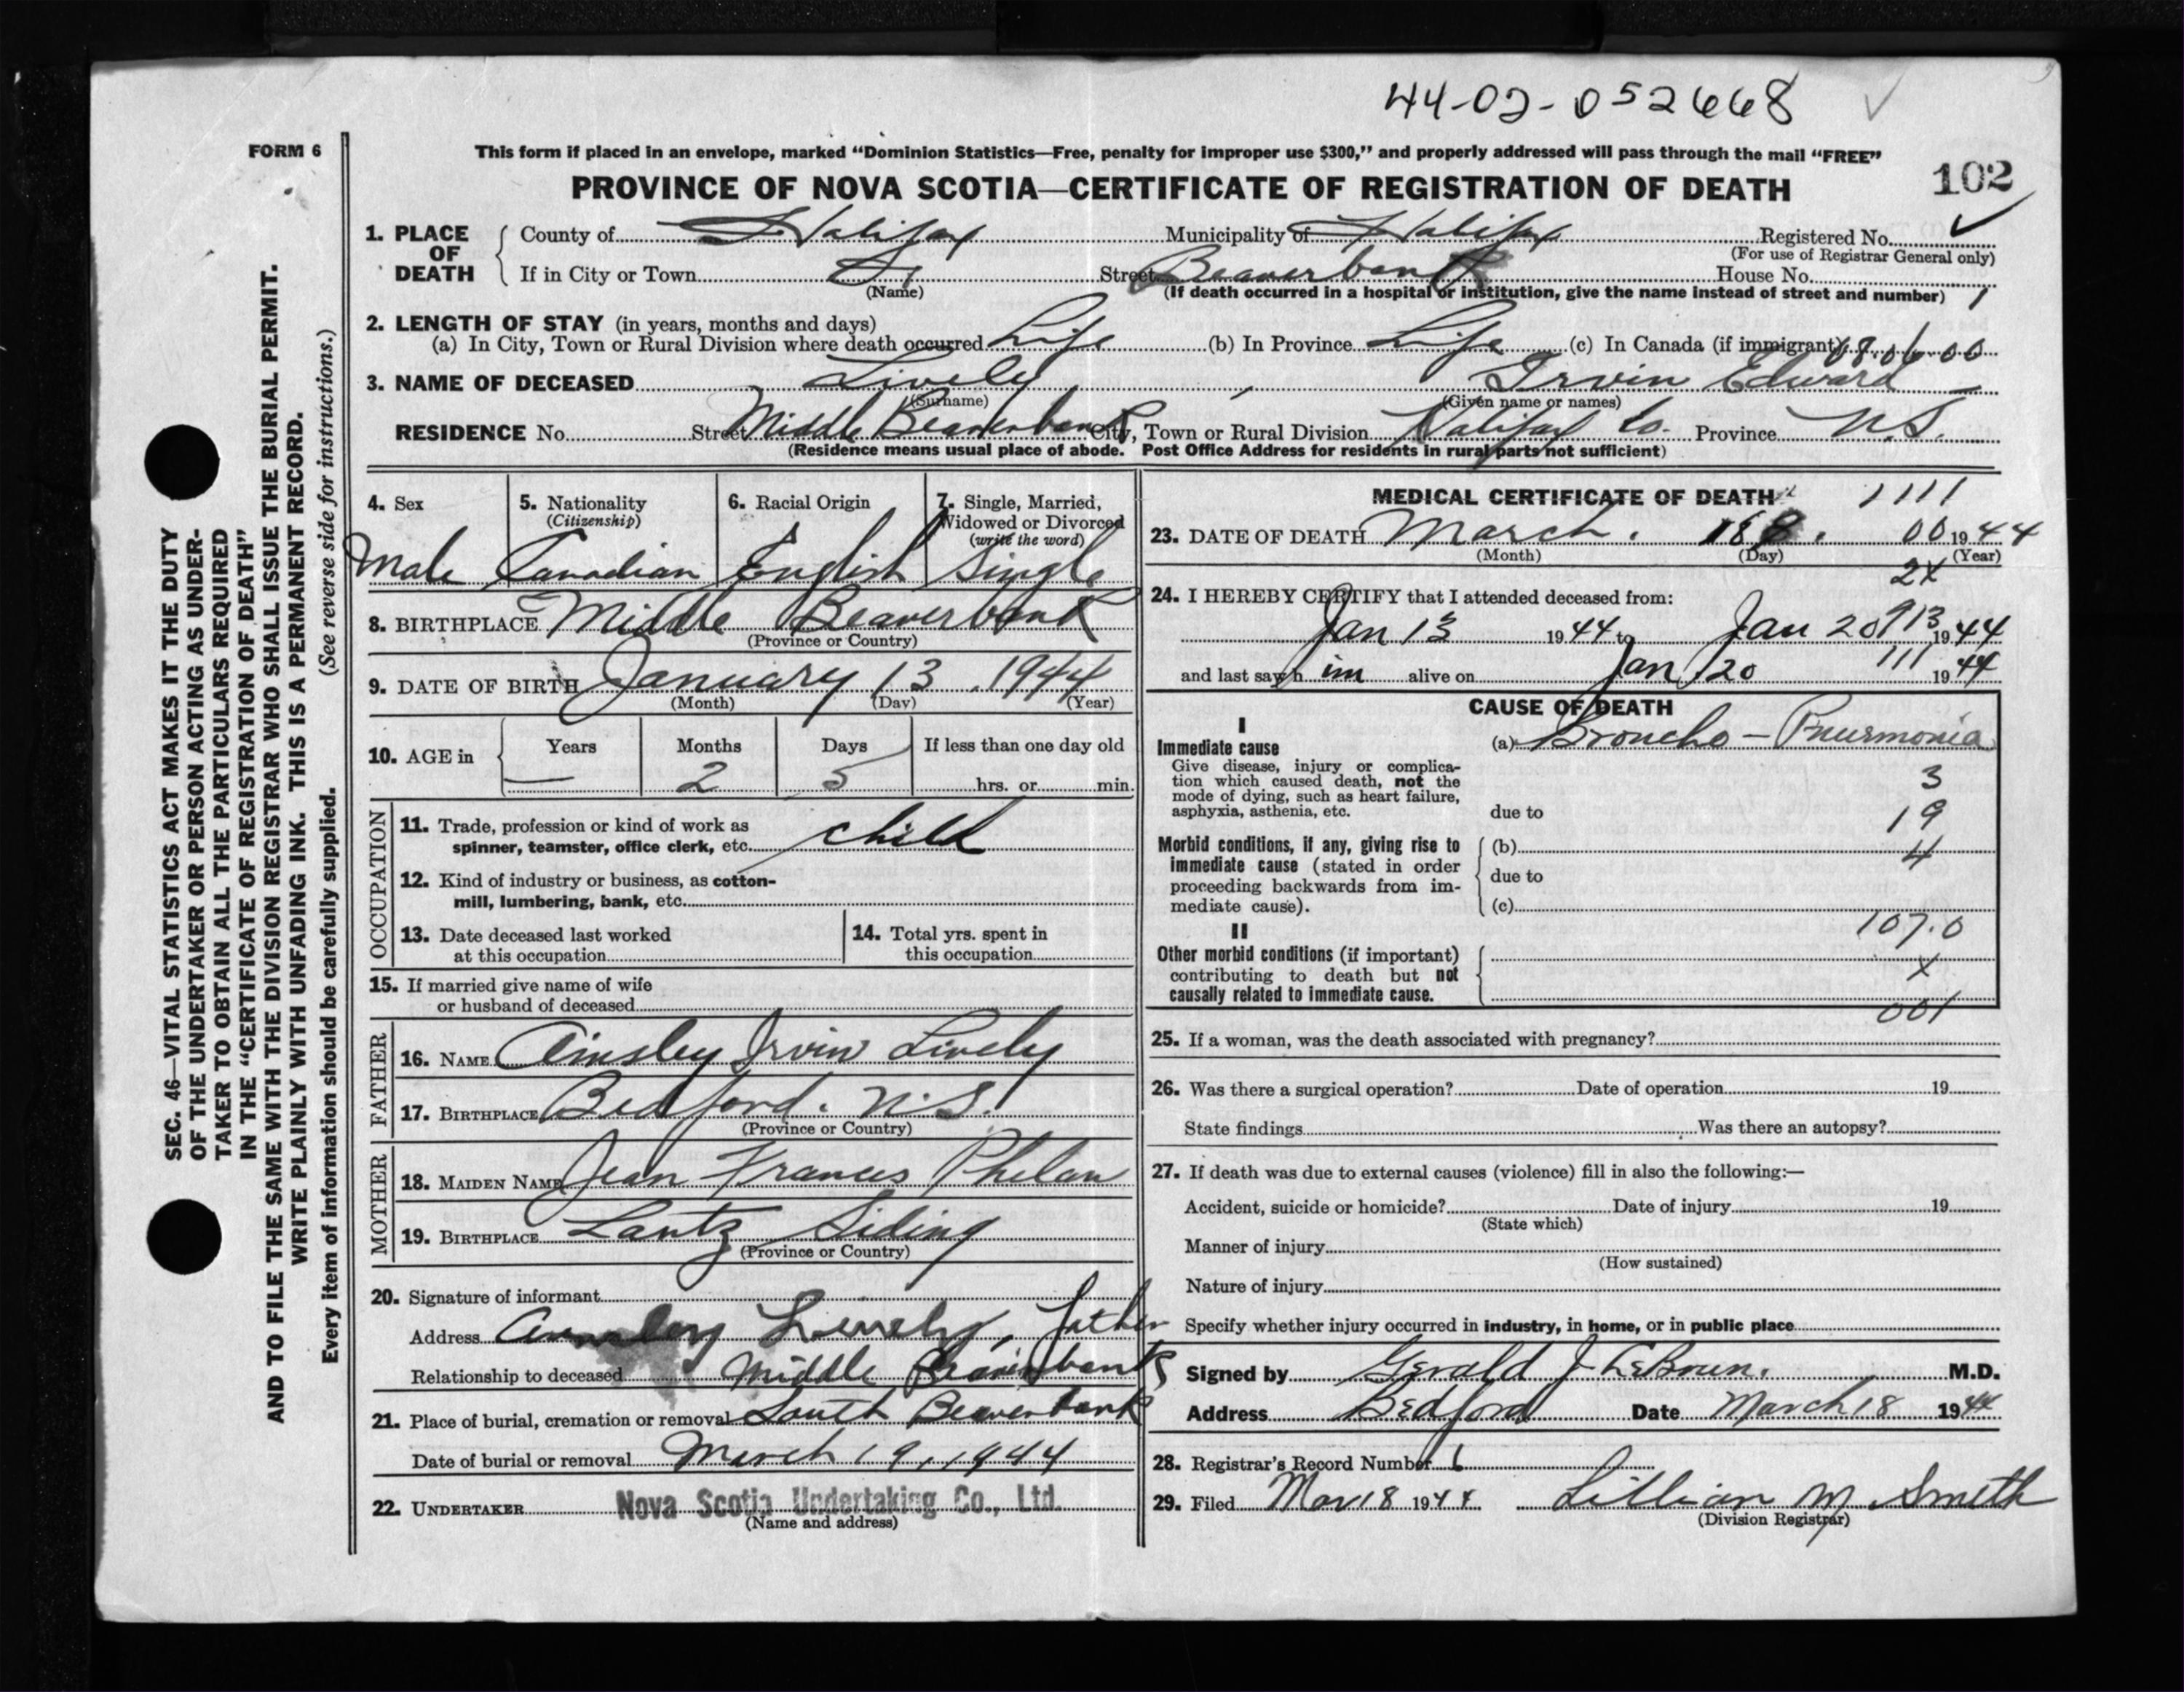 44-02-052668
FORM 6
This form if placed in an envelope, marked "Dominion Statistics—Free, penalty for improper use $300," and properly addressed will pass through the mail "FREE"
PROVINCE OF NOVA SCOTIA—CERTIFICATE OF REGISTRATION OF DEATH
102
1. PLACE OF DEATH
County of Halifax Municipality of Halifax Registered No.
(For use of Registrar General only)
If in City or Town Street Beaverbank House No.
(Name)
(If death occurred in a hospital or institution, give the name instead of street and number) 1
2. LENGTH OF STAY (in years, months and days)
(a) In City, Town or Rural Division where death occurred Life (b) In Province Life (c) In Canada (if immigrant)
3. NAME OF DECEASED Lively, Irvin Edward
(Surname) (Given name or names)
RESIDENCE No. Street Middle Beaverbank City, Town or Rural Division Halifax Co. Province N.S.
(Residence means usual place of abode. Post Office Address for residents in rural parts not sufficient)
4. Sex
Male
5. Nationality
(Citizenship)
Canadian
6. Racial Origin
English
7. Single, Married,
Widowed or Divorced
(write the word)
Single
8. BIRTHPLACE Middle Beaverbank
(Province or Country)
9. DATE OF BIRTH January 13, 1944
(Month) (Day) (Year)
10. AGE in
Years Months Days If less than one day old
— 2 5 hrs. or min.
OCCUPATION
11. Trade, profession or kind of work as
spinner, teamster, office clerk, etc. child
12. Kind of industry or business, as cotton-
mill, lumbering, bank, etc.
13. Date deceased last worked
at this occupation
14. Total yrs. spent in
this occupation
15. If married give name of wife
or husband of deceased
FATHER
16. NAME Ainsley Irvin Lively
17. BIRTHPLACE Bedford. N.S.
(Province or Country)
MOTHER
18. MAIDEN NAME Jean Frances Phelan
19. BIRTHPLACE Lantz Siding
(Province or Country)
20. Signature of informant
Address Lively, father
Relationship to deceased Middle Beaverbank
21. Place of burial, cremation or removal South Beaverbank
Date of burial or removal March 19, 1944
22. UNDERTAKER Nova Scotia Undertaking Co., Ltd.
(Name and address)
MEDICAL CERTIFICATE OF DEATH
1111
23. DATE OF DEATH March. 18. 00 1944
(Month) (Day) (Year)
2X
24. I HEREBY CERTIFY that I attended deceased from:
Jan 13 1944 to Jan 20 913 1944
and last saw him alive on Jan 20 111 1944
CAUSE OF DEATH
I
Immediate cause
Give disease, injury or complica-
tion which caused death, not the
mode of dying, such as heart failure,
asphyxia, asthenia, etc.
(a) Broncho-Pneumonia
3
due to
19
Morbid conditions, if any, giving rise to
immediate cause (stated in order
proceeding backwards from im-
mediate cause).
(b)
4
due to
(c)
107.0
II
Other morbid conditions (if important)
contributing to death but not
causally related to immediate cause.
X
001
25. If a woman, was the death associated with pregnancy?
26. Was there a surgical operation? Date of operation 19
State findings Was there an autopsy?
27. If death was due to external causes (violence) fill in also the following:—
Accident, suicide or homicide? Date of injury 19
(State which)
Manner of injury
(How sustained)
Nature of injury
Specify whether injury occurred in industry, in home, or in public place
Signed by Gerald J. LeBrun. M.D.
Address Bedford Date March 18 1944
28. Registrar's Record Number 6
29. Filed Mar 18 1944 Lillian M Smith
(Division Registrar)
SEC. 46—VITAL STATISTICS ACT MAKES IT THE DUTY
OF THE UNDERTAKER OR PERSON ACTING AS UNDER-
TAKER TO OBTAIN ALL THE PARTICULARS REQUIRED
IN THE "CERTIFICATE OF REGISTRATION OF DEATH"
AND TO FILE THE SAME WITH THE DIVISION REGISTRAR WHO SHALL ISSUE THE BURIAL PERMIT.
WRITE PLAINLY WITH UNFADING INK. THIS IS A PERMANENT RECORD.
Every item of information should be carefully supplied. (See reverse side for instructions.)